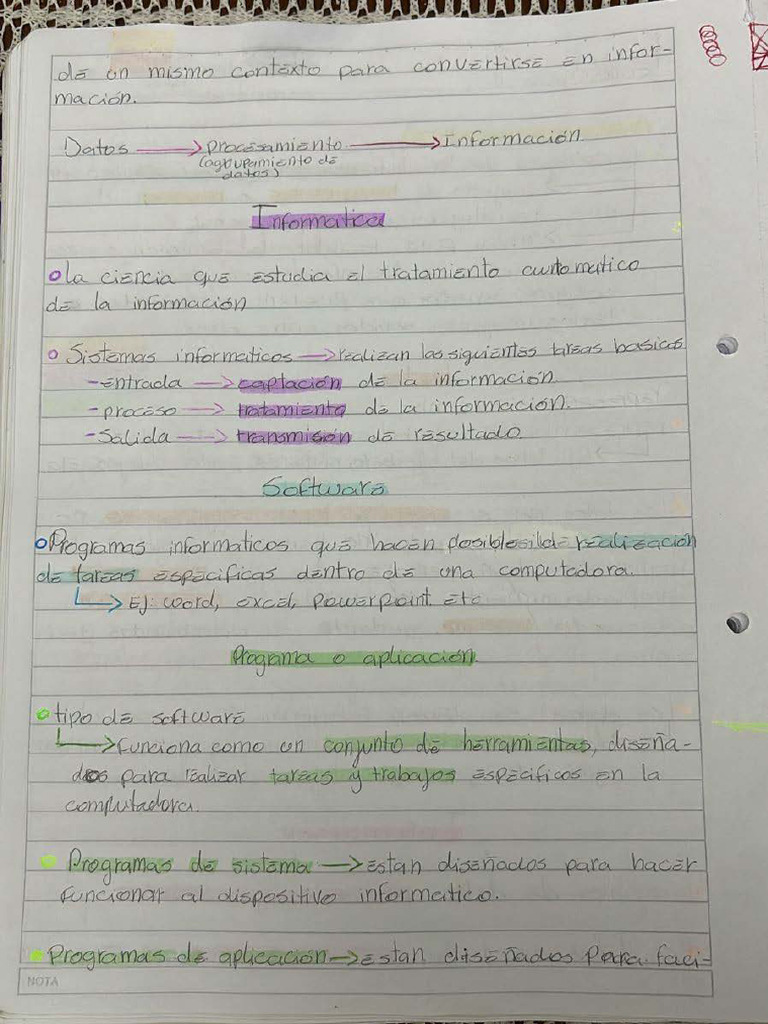 de un mismo contexto para convertirse en infor-
mación.
Datos → procesamiento → Información
(agrupamiento de
datos)
Informatica
o la ciencia que estudia el tratamiento automatico
de la información
o Sistemas informaticos → realizan las siguientes tareas basicas
- entrada → captación de la información
- proceso → tratamiento de la información.
- Salida → transmisión de resultado
Software
o Programas informaticos que hacen posibles la realización
de tareas especificas dentro de una computadora.
↳ Ej: word, excel, PowerPoint. etc
Programa o aplicación.
• tipo de software
↳ funciona como un conjunto de herramientas, diseña-
dos para realizar tareas y trabajos especificos en la
computadora.
• Programas de sistema → estan diseñados para hacer
funcionar al dispositivo informatico.
• Programas de aplicación → estan diseñados para faci-
NOTA